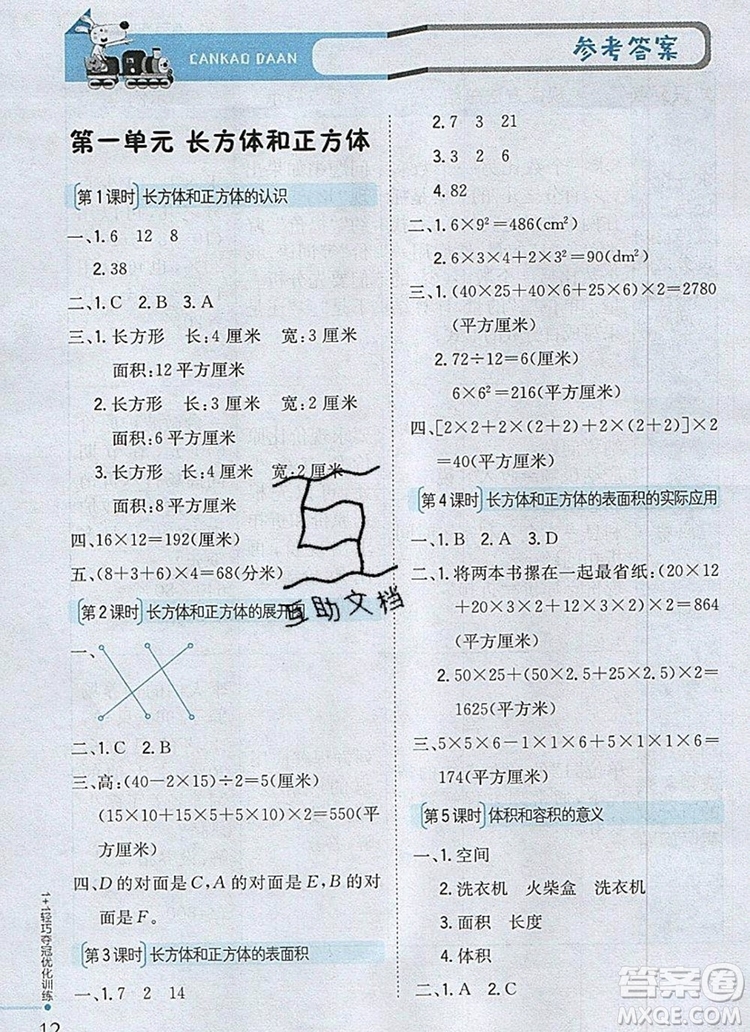 CANKAO DAAN
参考答案
第一单元 长方体和正方体
第1课时 长方体和正方体的认识
一、1.6 12 8
2.38
二、1.C 2.B 3.A
三、1.长方形 长:4厘米 宽:3厘米
面积:12平方厘米
2.长方形 长:3厘米 宽:2厘米
面积:6平方厘米
3.长方形 长:4厘米 宽:2厘米
面积:8平方厘米
四、16×12=192(厘米)
五、(8+3+6)×4=68(分米)
第2课时 长方体和正方体的展开图
一、
二、1.C 2.B
三、高:(40-2×15)÷2=5(厘米)
(15×10+15×5+10×5)×2=550(平
方厘米)
四、D的对面是C,A的对面是E,B的对
面是F。
第3课时 长方体和正方体的表面积
一、1.7 2 14
2.7 3 21
3.3 2 6
4.82
二、1.6×9²=486(cm²)
2.6×3×4+2×3²=90(dm²)
三、1.(40×25+40×6+25×6)×2=2780
(平方厘米)
2.72÷12=6(厘米)
6×6²=216(平方厘米)
四、[2×2+2×(2+2)+2×(2+2)]×2
=40(平方厘米)
第4课时 长方体和正方体的表面积的实际应用
一、1.B 2.A 3.D
二、1.将两本书摞在一起最省纸:(20×12
+20×3×2+12×3×2)×2=864
(平方厘米)
2.50×25+(50×2.5+25×2.5)×2=
1625(平方厘米)
三、5×5×6-1×1×6+5×5×6×2=
174(平方厘米)
第5课时 体积和容积的意义
一、1.空间
2.洗衣机 火柴盒 洗衣机
3.面积 长度
4.体积
1+1轻巧夺冠优化训练
12
互助文档
答案圈
MXQE.COM